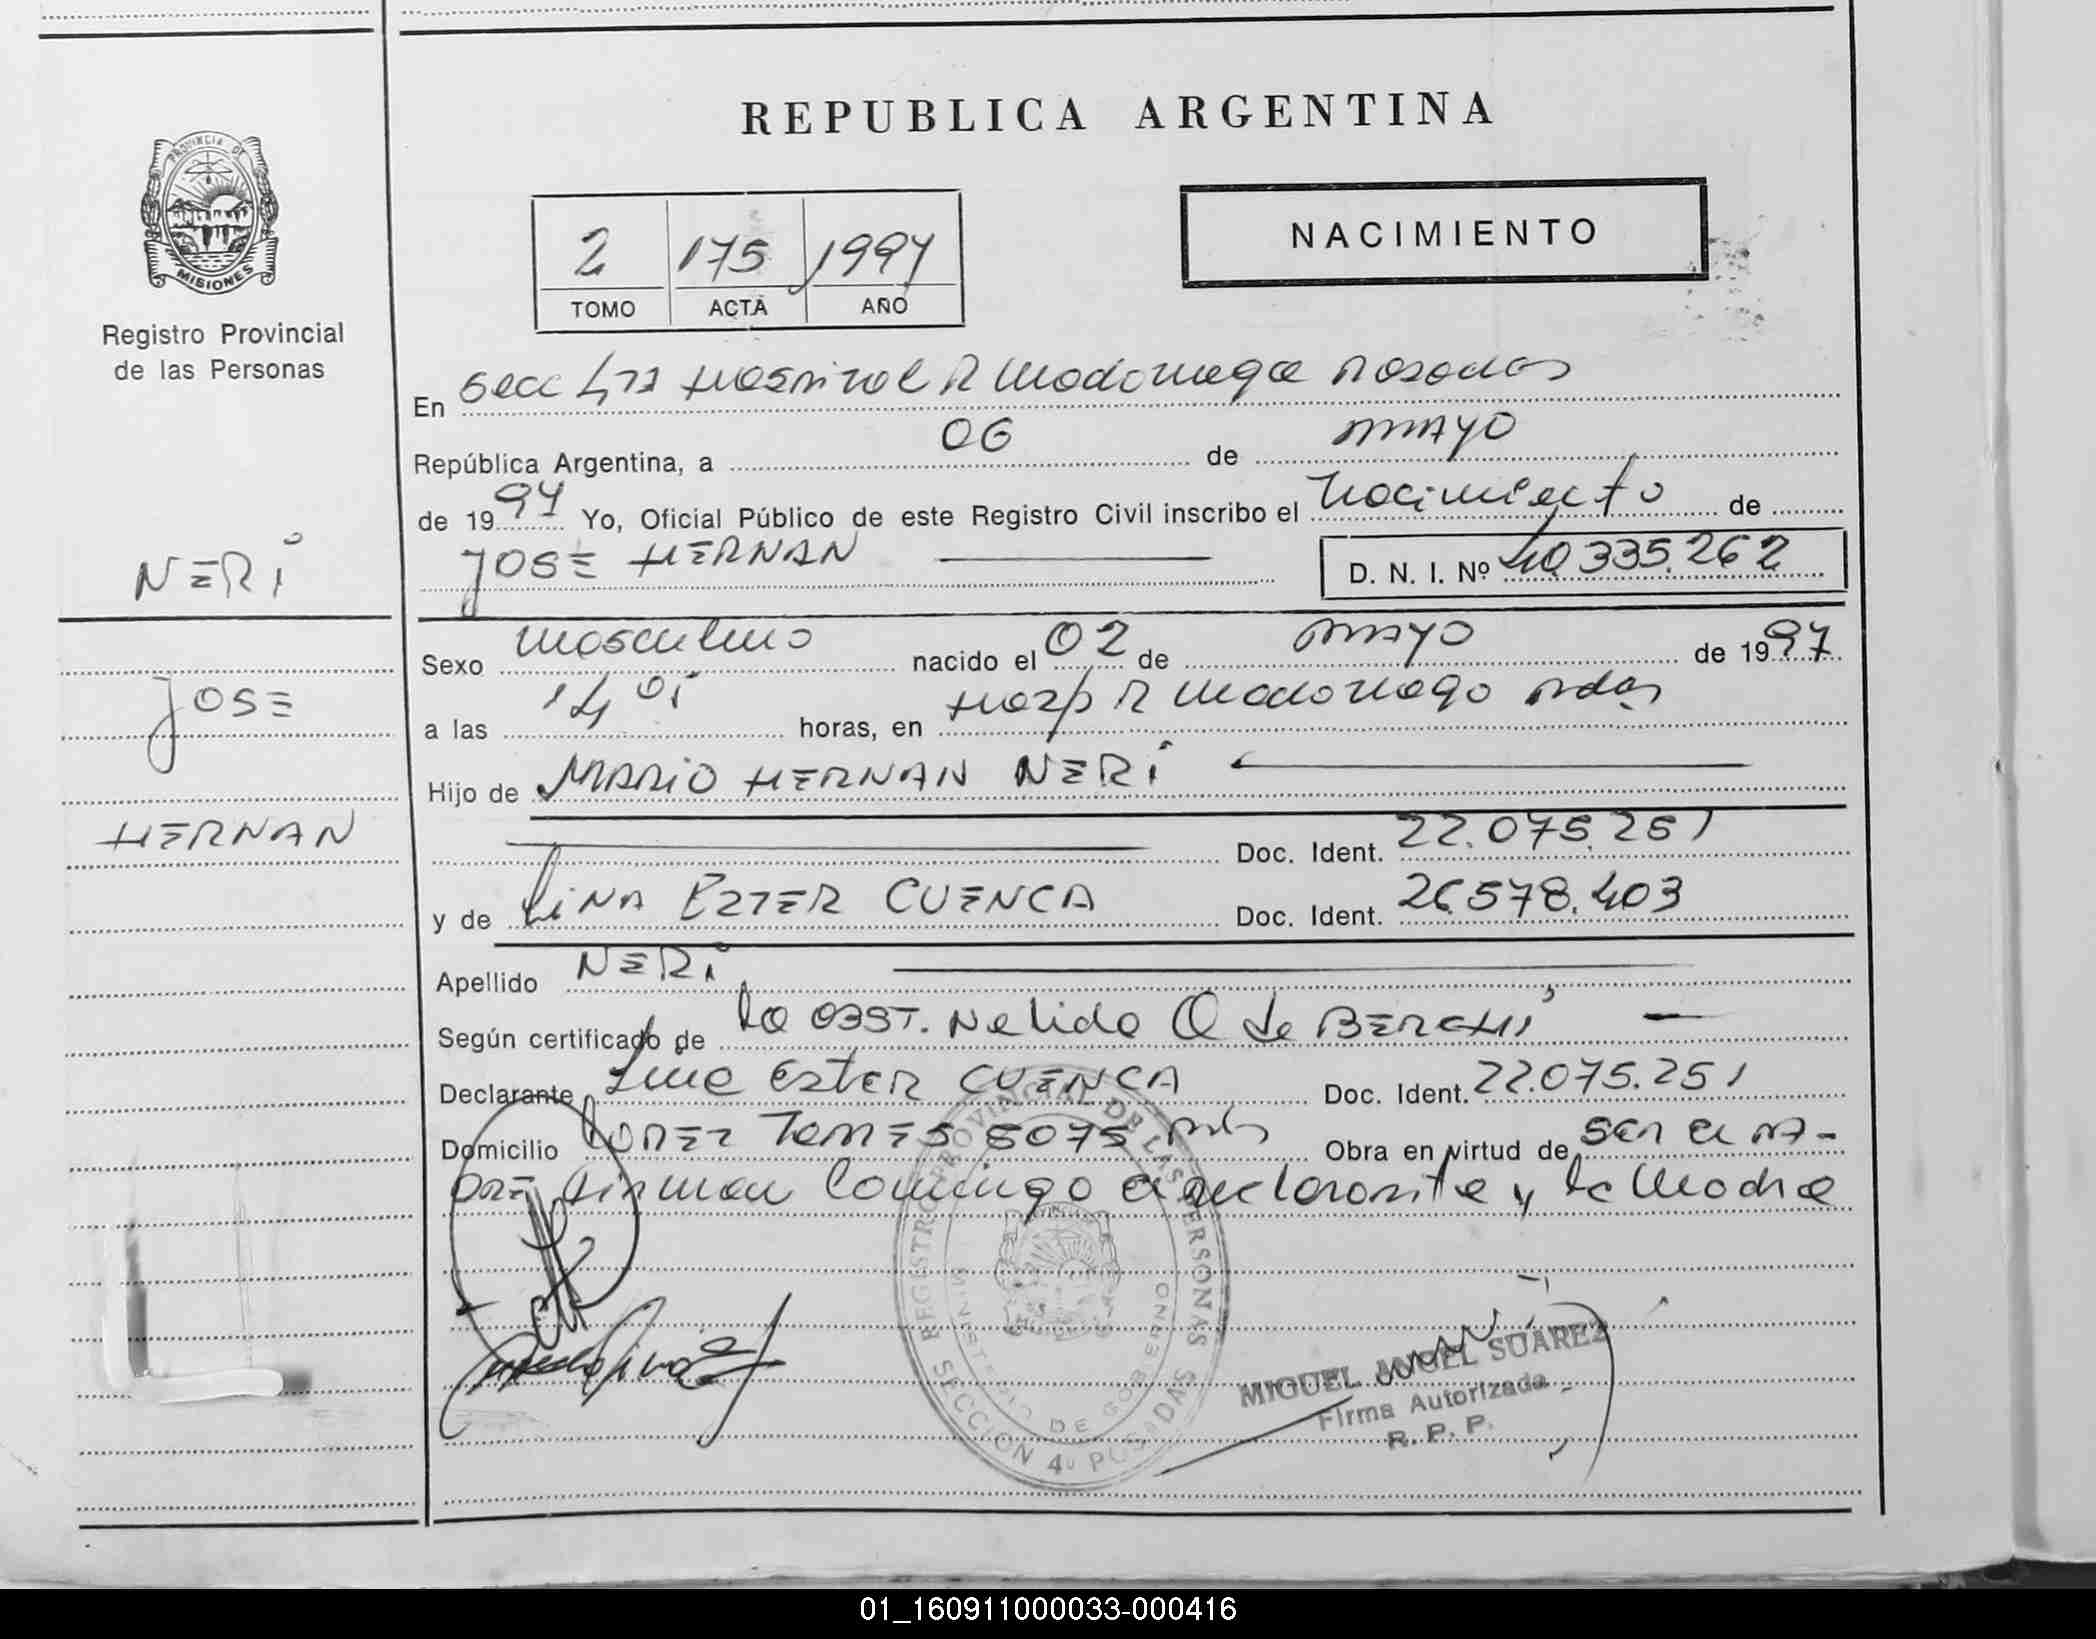 REPUBLICA ARGENTINA
PROVINCIA DE
MISIONES
Registro Provincial
de las Personas
NACIMIENTO
2 175 1997
TOMO ACTA AÑO
En Secc 4ta Hospital R Madariaga Posadas
República Argentina, a 06 de mayo
de 1997 Yo, Oficial Público de este Registro Civil inscribo el Nacimiento de
JOSE HERNAN D. N. I. Nº 40.335.262
NERI
JOSE
HERNAN
Sexo Masculino nacido el 02 de mayo de 1997
a las 14 01 horas, en Hosp R Madariaga Pdas
Hijo de MARIO HERNAN NERI
Doc. Ident. 22.075.251
y de LINA ESTER CUENCA Doc. Ident. 26.578.403
Apellido NERI
Según certificado de la OBST. Nelida O de BERCHI
Declarante Lina Ester CUENCA Doc. Ident. 22.075.251
Domicilio LOPEZ TORRES 5075 Pds Obra en virtud de ser el PA-
DRE Firman Conmigo el declarante y la Madre
REGISTRO PROVINCIAL DE LAS PERSONAS
MINISTERIO DE GOBIERNO
SECCION 4ª POSADAS
MIGUEL ANGEL SUAREZ
Firma Autorizada
R. P. P.
01_160911000033-000416